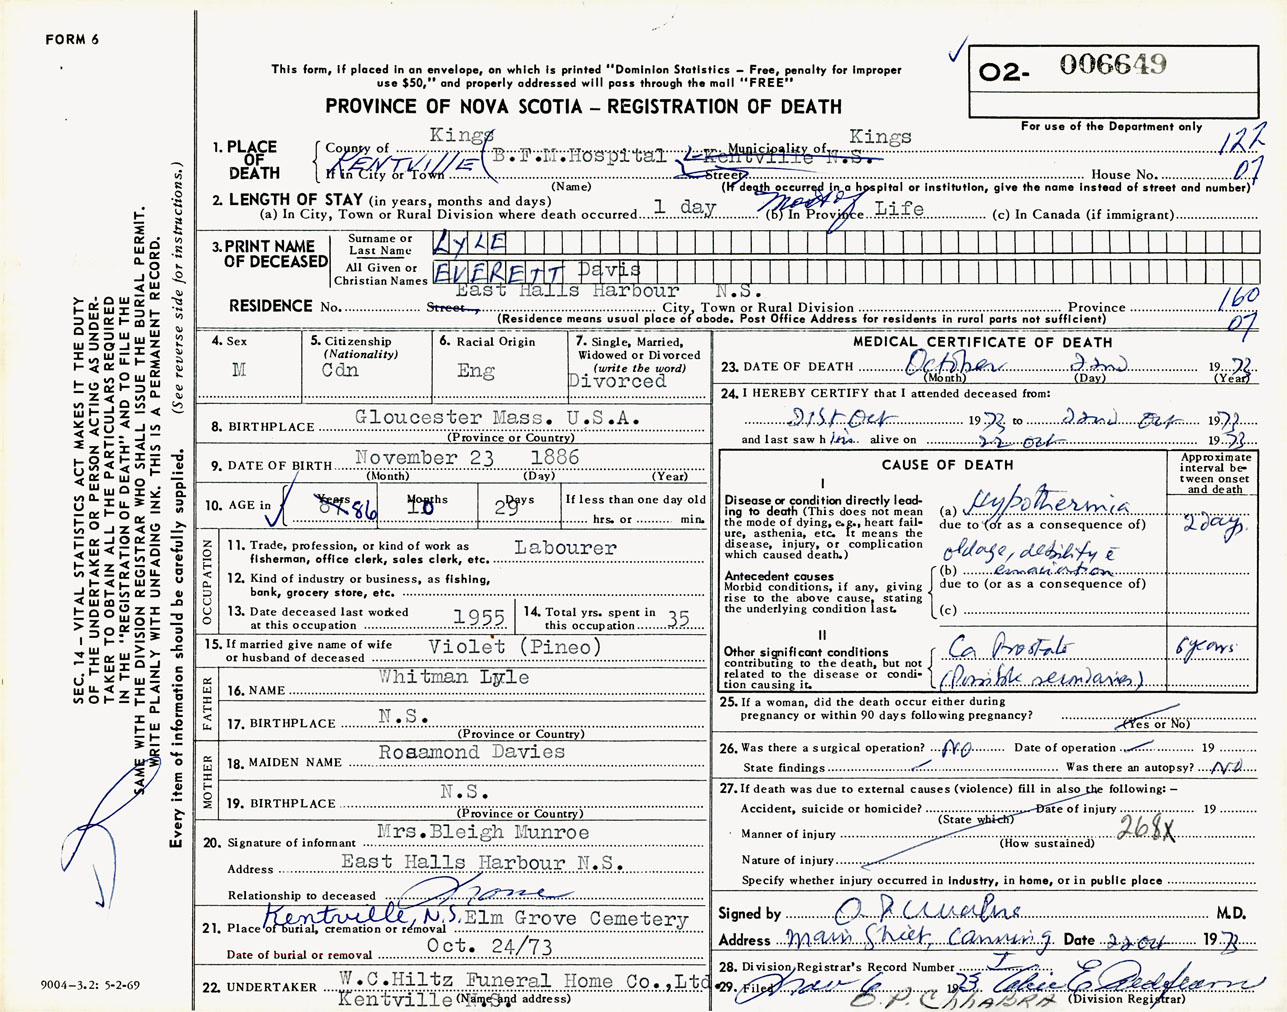 FORM 6
This form, if placed in an envelope, on which is printed "Dominion Statistics – Free, penalty for improper
use $50," and properly addressed will pass through the mail "FREE"
PROVINCE OF NOVA SCOTIA – REGISTRATION OF DEATH
O2- 006649
For use of the Department only
122
07
1. PLACE OF DEATH
County of Kings Municipality of Kings
If in City or Town KENTVILLE (B.F.M.Hospital Kentville N.S. Street House No.
(Name) (If death occurred in a hospital or institution, give the name instead of street and number)
2. LENGTH OF STAY (in years, months and days)
(a) In City, Town or Rural Division where death occurred 1 day (b) In Province most of Life (c) In Canada (if immigrant)
3. PRINT NAME OF DECEASED
Surname or Last Name LYLE
All Given or Christian Names EVERETT Davis
East Halls Harbour N.S.
RESIDENCE No. Street, City, Town or Rural Division Province
(Residence means usual place of abode. Post Office Address for residents in rural parts not sufficient)
160
07
4. Sex M
5. Citizenship (Nationality) Cdn
6. Racial Origin Eng
7. Single, Married, Widowed or Divorced (write the word) Divorced
8. BIRTHPLACE Gloucester Mass. U.S.A.
(Province or Country)
9. DATE OF BIRTH November 23 1886
(Month) (Day) (Year)
10. AGE in Years 86 Months 10 Days 29 If less than one day old
hrs. or min.
OCCUPATION
11. Trade, profession, or kind of work as fisherman, office clerk, sales clerk, etc. Labourer
12. Kind of industry or business, as fishing, bank, grocery store, etc.
13. Date deceased last worked at this occupation 1955
14. Total yrs. spent in this occupation 35
15. If married give name of wife or husband of deceased Violet (Pineo)
FATHER
16. NAME Whitman Lyle
17. BIRTHPLACE N.S.
(Province or Country)
MOTHER
18. MAIDEN NAME Rosamond Davies
19. BIRTHPLACE N.S.
(Province or Country)
20. Signature of informant Mrs.Bleigh Munroe
Address East Halls Harbour N.S.
Relationship to deceased
21. Place of burial, cremation or removal Kentville, N.S. Elm Grove Cemetery
Date of burial or removal Oct. 24/73
22. UNDERTAKER W.C.Hiltz Funeral Home Co.,Ltd
Kentville N.S. (Name and address)
MEDICAL CERTIFICATE OF DEATH
23. DATE OF DEATH October 22nd 1973
(Month) (Day) (Year)
24. I HEREBY CERTIFY that I attended deceased from:
21st Oct 1973 to 22nd Oct 1973
and last saw h his alive on 22 Oct 1973
CAUSE OF DEATH
Approximate interval between onset and death
I
Disease or condition directly leading to death (This does not mean the mode of dying, e.g., heart failure, asthenia, etc. It means the disease, injury, or complication which caused death.)
(a) Hypothermia 2 days
due to (or as a consequence of)
oldage, debility c̄
(b) emaciation
due to (or as a consequence of)
(c)
Antecedent causes
Morbid conditions, if any, giving rise to the above cause, stating the underlying condition last.
II
Other significant conditions contributing to the death, but not related to the disease or condition causing it.
Ca Prostate 6 years
(Possible secondaries)
25. If a woman, did the death occur either during pregnancy or within 90 days following pregnancy?
(Yes or No)
26. Was there a surgical operation? NO Date of operation 19
State findings Was there an autopsy? NO
27. If death was due to external causes (violence) fill in also the following: –
Accident, suicide or homicide? Date of injury 19
(State which)
Manner of injury 268X
(How sustained)
Nature of injury
Specify whether injury occurred in industry, in home, or in public place
Signed by M.D.
Address Main Street, Canning Date 22 Oct 1973
28. Division Registrar's Record Number
29. Filed Nov 6 1973
O.P. CHHABRA (Division Registrar)
SEC. 14 – VITAL STATISTICS ACT MAKES IT THE DUTY
OF THE UNDERTAKER OR PERSON ACTING AS UNDER-
TAKER TO OBTAIN ALL THE PARTICULARS REQUIRED
IN THE "REGISTRATION OF DEATH" AND TO FILE THE
SAME WITH THE DIVISION REGISTRAR WHO SHALL ISSUE THE BURIAL PERMIT.
WRITE PLAINLY WITH UNFADING INK. THIS IS A PERMANENT RECORD.
Every item of information should be carefully supplied. (See reverse side for instructions.)
9004-3.2: 5-2-69